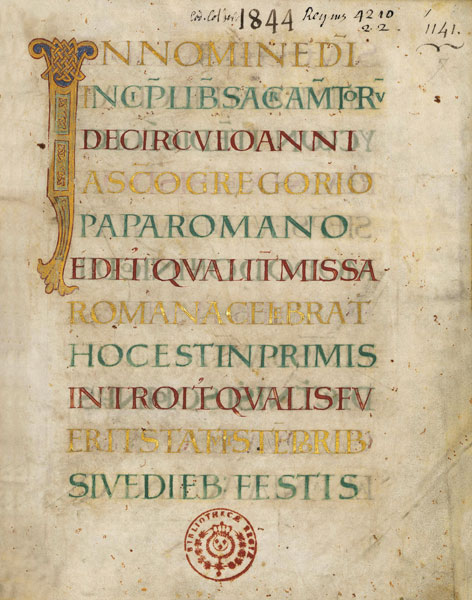 Cod. Colb. 1844 Regius 4210
2.2.
1141.
IN NOMINE DNI
INCIP LIB SACRAMTORV
DE CIRCULO ANNI
A SCO GREGORIO
PAPA ROMANO
EDIT QVALIT MISSA
ROMANA CELEBRAT
HOC EST IN PRIMIS
INTROIT QVALIS FV
ERIT STATIS TEPRIB
SIVE DIEB FESTIS
BIBLIOTHECÆ REGIÆ